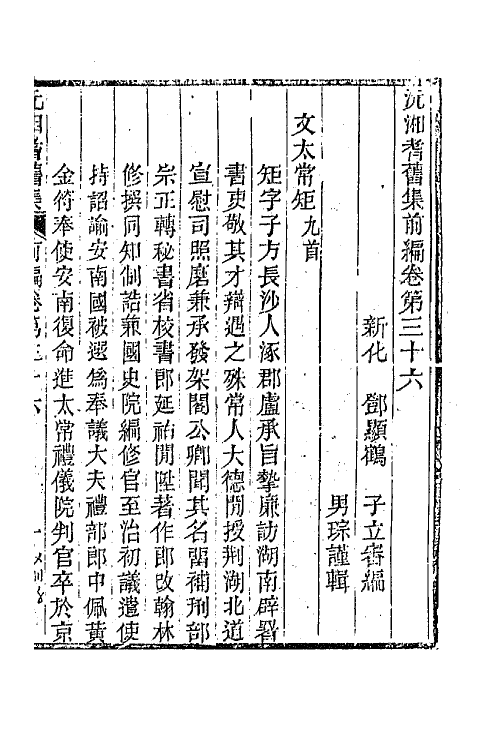 沅湘耆舊集前編卷第三十六
新化　鄧顯鶴　子立審編
男琮謹輯
文太常矩九首
矩字子方長沙人涿郡盧承旨摯廉訪湖南辟署
書吏敬其才辯遇之殊常人大德閒授荆湖北道
宣慰司照磨兼承發架閣公卿聞其名畱補刑部
宗正轉秘書省校書郎延祐閒陞著作郎改翰林
修撰同知制誥兼國史院編修官至治初議遣使
持詔諭安南國被選爲奉議大夫禮部郎中佩黃
金符奉使安南復命進太常禮儀院判官卒於京
沅湘耆舊集　前編卷第三十六　一